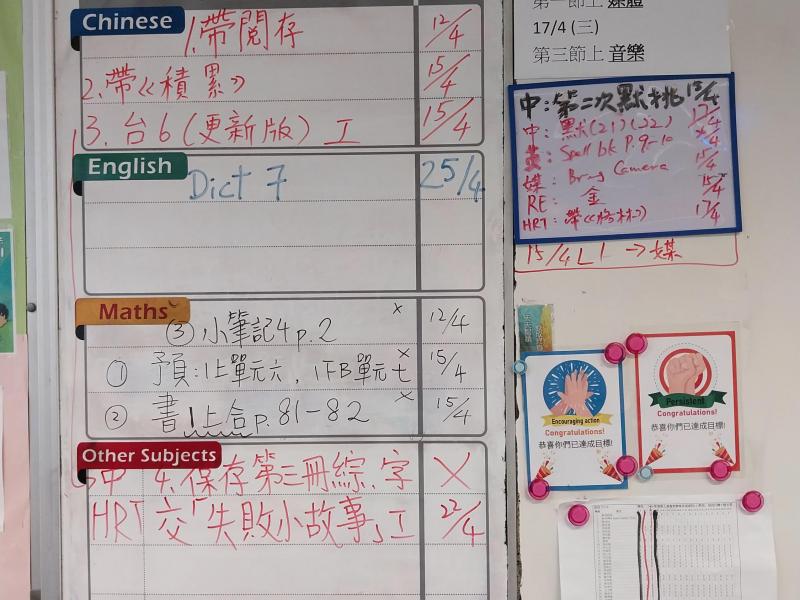 Chinese
1.帶閱存 12/4
2.帶《積累》 15/4
3.台6(更新版) 工 15/4
English
Dict 7 25/4
Maths
③小筆記4 p.2 x 12/4
① 預:1上單元六，1下B單元七 x 15/4
② 書1上台p.81-82 x 15/4
Other Subjects
中 4.保存第三冊綜.字 X
HRT 交「失敗小故事」工 22/4
第一節上 媒體
17/4 (三)
第三節上 音樂
中:第二次默挑 15/4
中: 默(21)(22) 17/4
英: Spell bk P.9-10
媒: Bring Camera 15/4
RE: 金 15/4
HRT: 帶 17/4
15/4 L1 → 媒
Encouraging action
Congratulations!
恭喜你們已達成目標!
Persistent
Congratulations!
恭喜你們已達成目標!